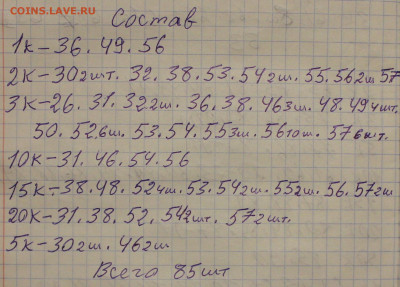 COINS.LAVE.RU
Состав
1к-36.49.56
2к-30 2шт. 32. 38. 53. 54 2ш. 55. 56 2ш 57
3к-26. 31. 32 2ш. 36. 38. 46 3ш. 48. 49 4шт.
50. 52 6ш. 53. 54. 55 3ш. 56 10ш. 57 6шт.
10к-31. 46. 54. 56
15к-38. 48. 52 4ш. 53. 54 2ш. 55 2ш. 56. 57 2ш
20к-31. 38. 52. 54 2шт. 57 2шт.
5к-30 2ш. 46 2ш
Всего 85шт